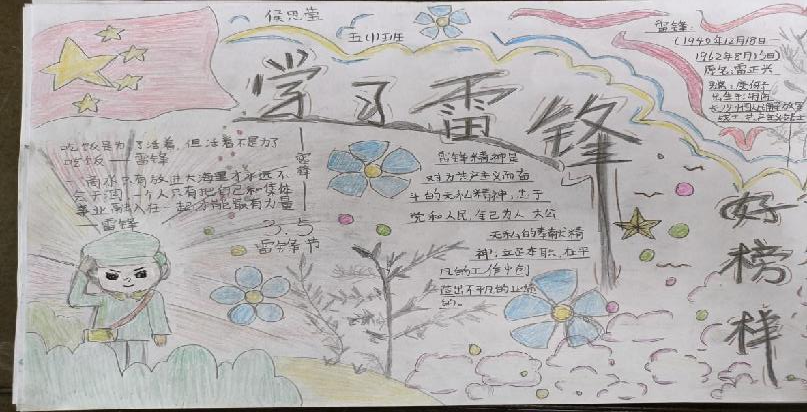 侯思莹
五(1)班
学习雷锋
好榜样
雷锋
(1940年12月18日
1962年8月15日)
原名,雷正兴
吃饭是为了活着,但活着不是为了
吃饭——雷锋
滴水只有放进大海里才永远不
会干涸一个人只有把自己和集体
事业融入在一起才能最有力量
——雷锋
雷锋
3.5
雷锋节
雷锋精神是
对为共产主义而奋
斗的无私精神,忠于
党和人民,舍己为人、大公
无私的奉献精
神,立足本职、在平
凡的工作中创
造出不平凡的业绩